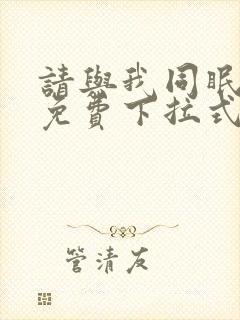 請與我同眠
免費下拉式
管清友